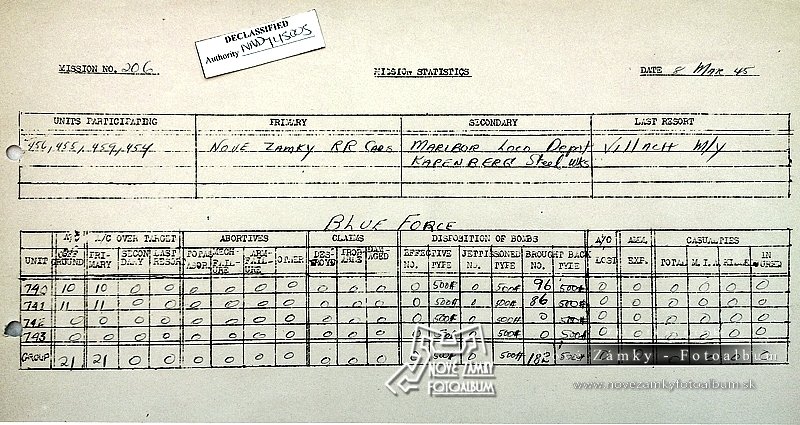 DECLASSIFIED
Authority NND745005
MISSION NO. 206 MISSION STATISTICS DATE 8 MAR 45
UNITS PARTICIPATING PRIMARY SECONDARY LAST RESORT
456, 455, 459, 454 NOVE ZAMKY RR CARS MARIBOR LOCO DEPOT VILLACH M/Y
KAPENBERG STEEL WKS
BLUE FORCE
A/C A/C OVER TARGET ABORTIVES CLAIMS DISPOSITION OF BOMBS A/C CASUALTIES
UNIT OFF GROUND PRIMARY SECONDARY LAST RESORT TOTAL ABOR. MECH. FAILURE FAILURE OTHER DESTROYD DAMAGED EFFECTIVE NO. TYPE JETTISONED NO. TYPE BROUGHT BACK NO. TYPE LOST EXP. TOTAL M.I.A. KILLED INJURED
740 10 10 0 0 0 0 0 0 0 0 0 0 500# 0 500# 96 500# 0 0 0 0 0 0
741 11 11 0 0 0 0 0 0 0 0 0 0 500# 0 500# 86 500# 0 0 0 0 0 0
742 0 0 0 0 0 0 0 0 0 0 0 0 500# 0 500# 0 500# 0 0 0 0 0 0
743 0 0 0 0 0 0 0 0 0 0 0 0 500# 0 500# 0 500# 0 0 0 0 0 0
GROUP 21 21 0 0 0 0 0 0 0 0 0 500# 0 500# 182 500# 0
NOVÉ ZÁMKY
FOTOALBUM
Zámky - Fotoalbum
www.novezamkyfotoalbum.sk